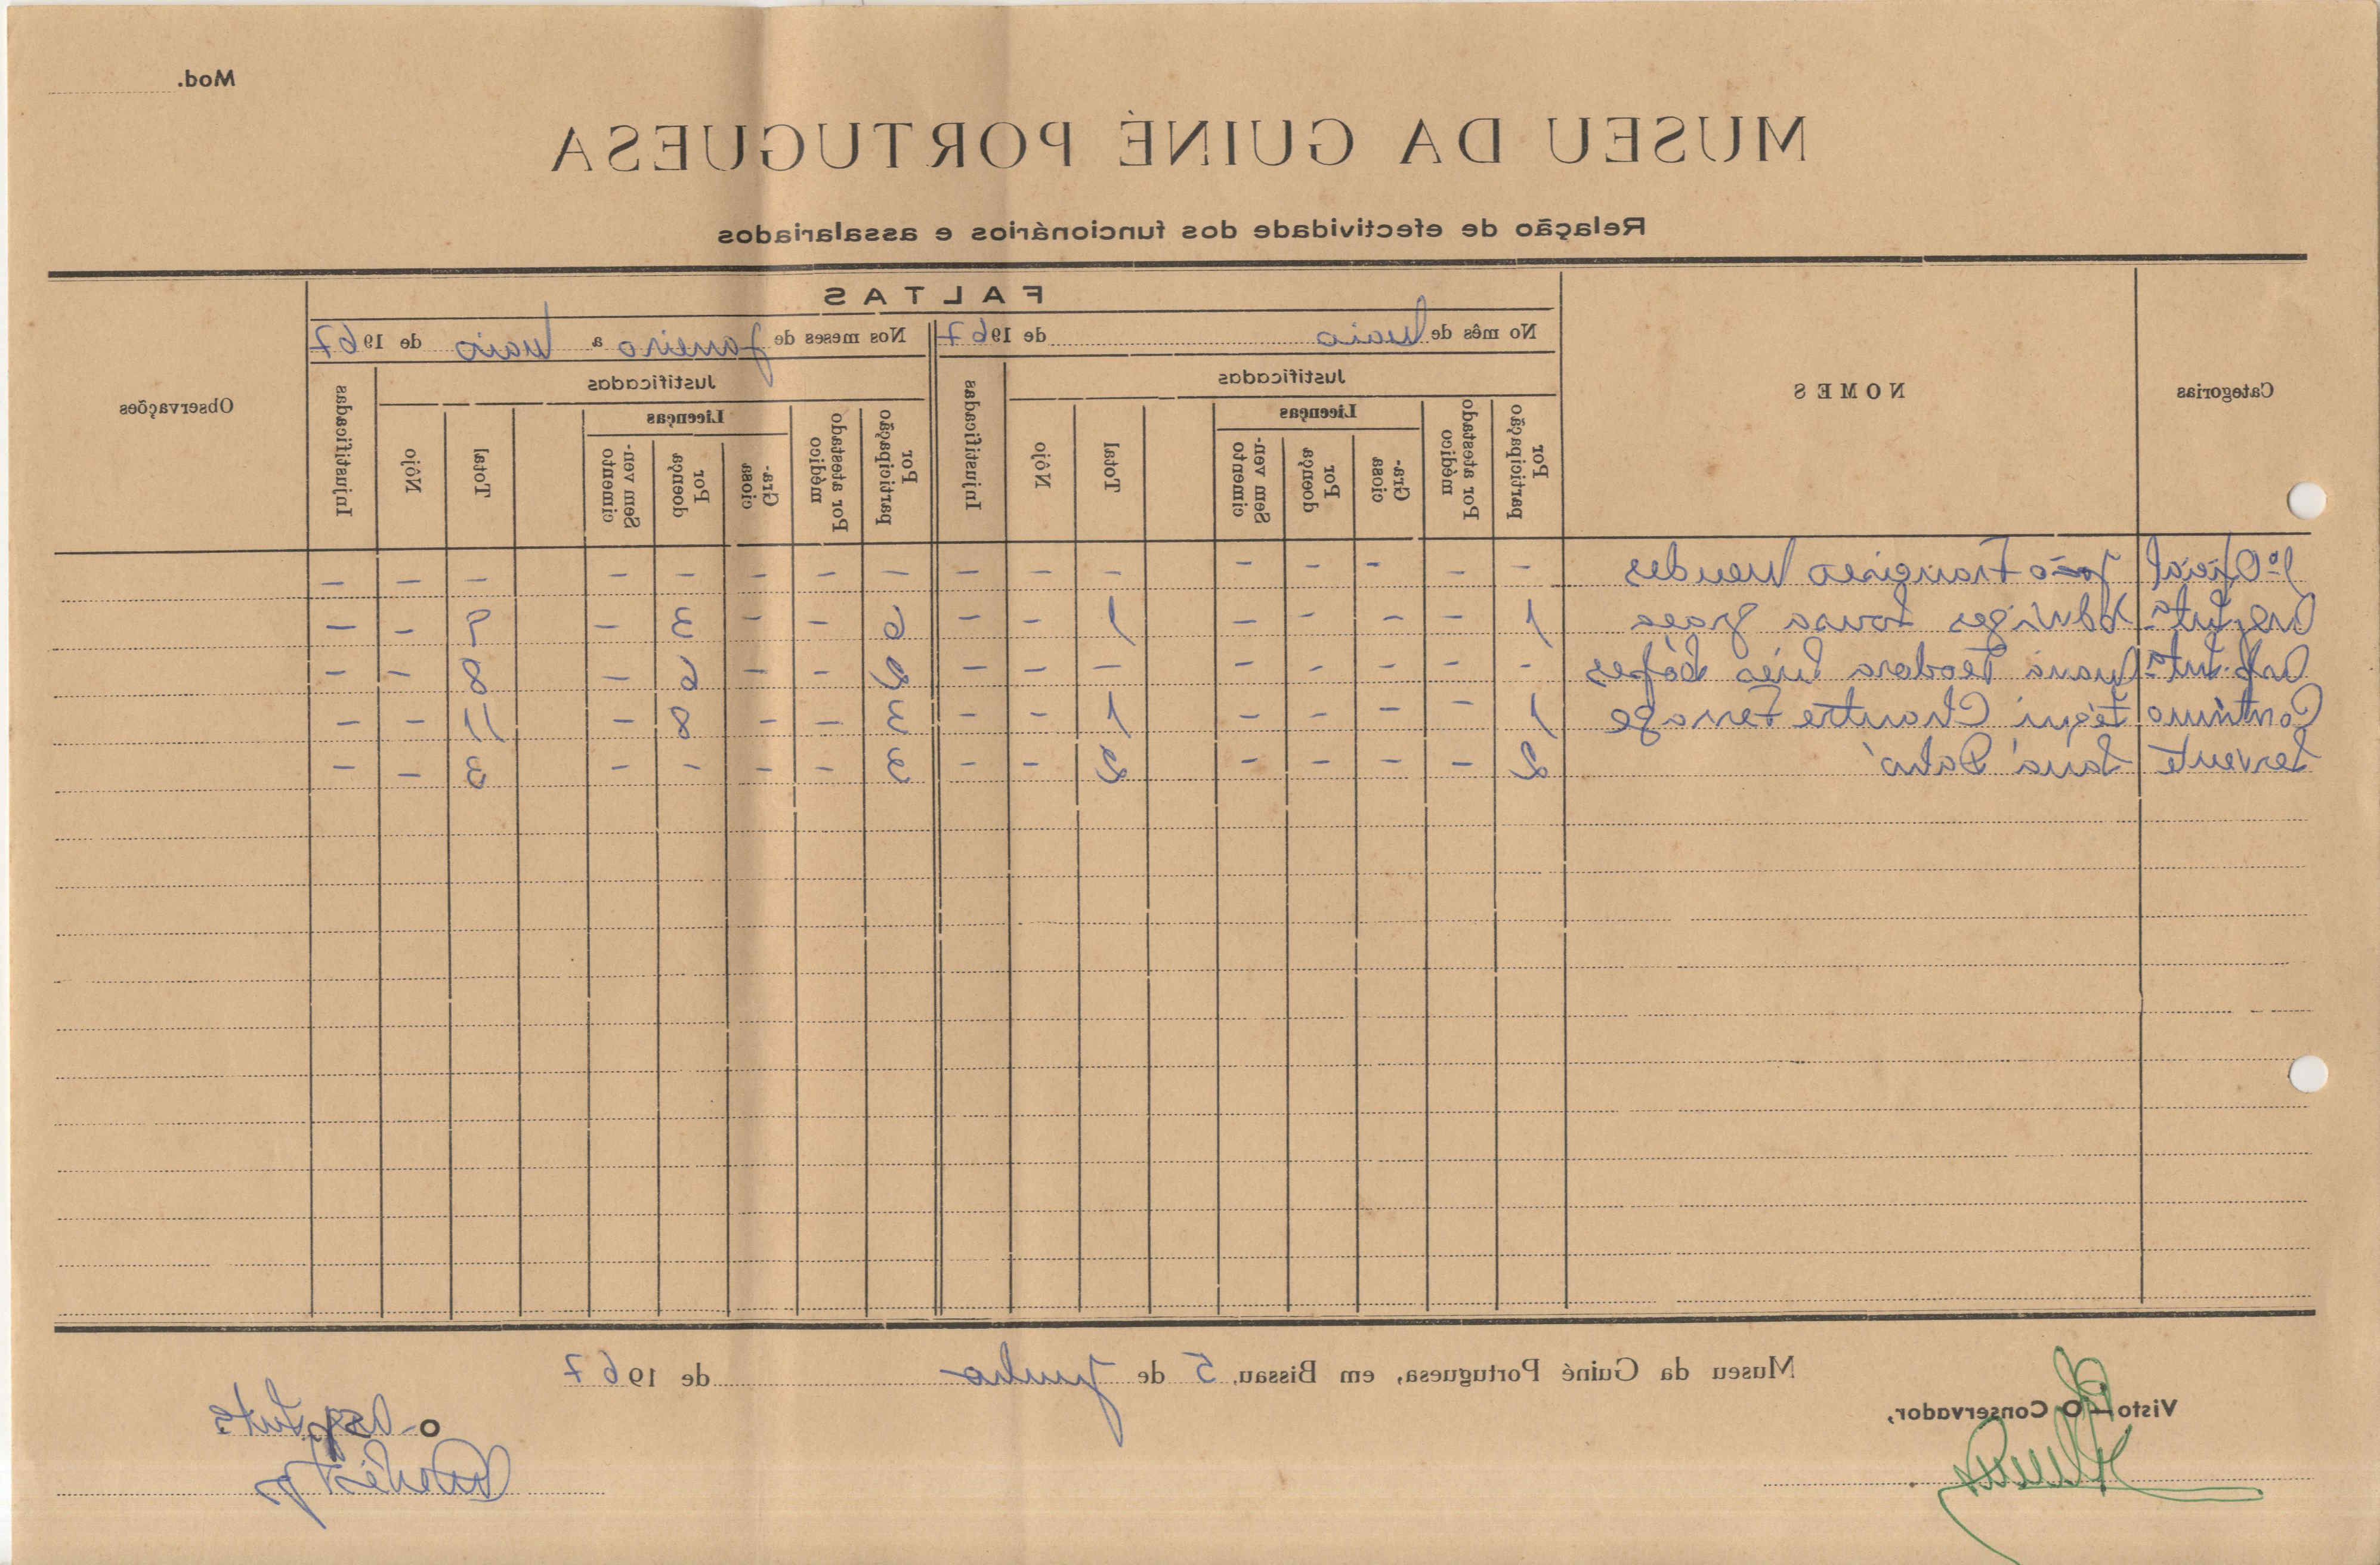 Mod.
MUSEU DA GUINÉ PORTUGUESA
Relação de efectividade dos funcionários e assalariados
Categorias
NOMES
FALTAS
Observações
No mês de Maio de 1967
Nos meses de Janeiro a Maio de 1967
Justificadas
Injustificadas
Justificadas
Injustificadas
Por participação
Por atestado médico
Licenças
Gra-ciosa
Por doença
Sem ven-cimento
Total
Nôjo
Por participação
Por atestado médico
Licenças
Gra-ciosa
Por doença
Sem ven-cimento
Total
Nôjo
1º Oficial João Francisco Mendes - - - - - - - - - - - - - - - -
Edviges Sousa 1 - - - - 1 - - 6 - - 3 - 9 - -
Maria Teodora Inês Lópes - - - - - - - - 2 - - 6 - 8 - -
Contínuo 1 - - - - 1 - - 3 - - 8 - 11 - -
Servente 2 - - - - 2 - - 3 - - - - 3 - -
Museu da Guiné Portuguesa, em Bissau, 5 de Junho de 1967
Visto — O Conservador,
O